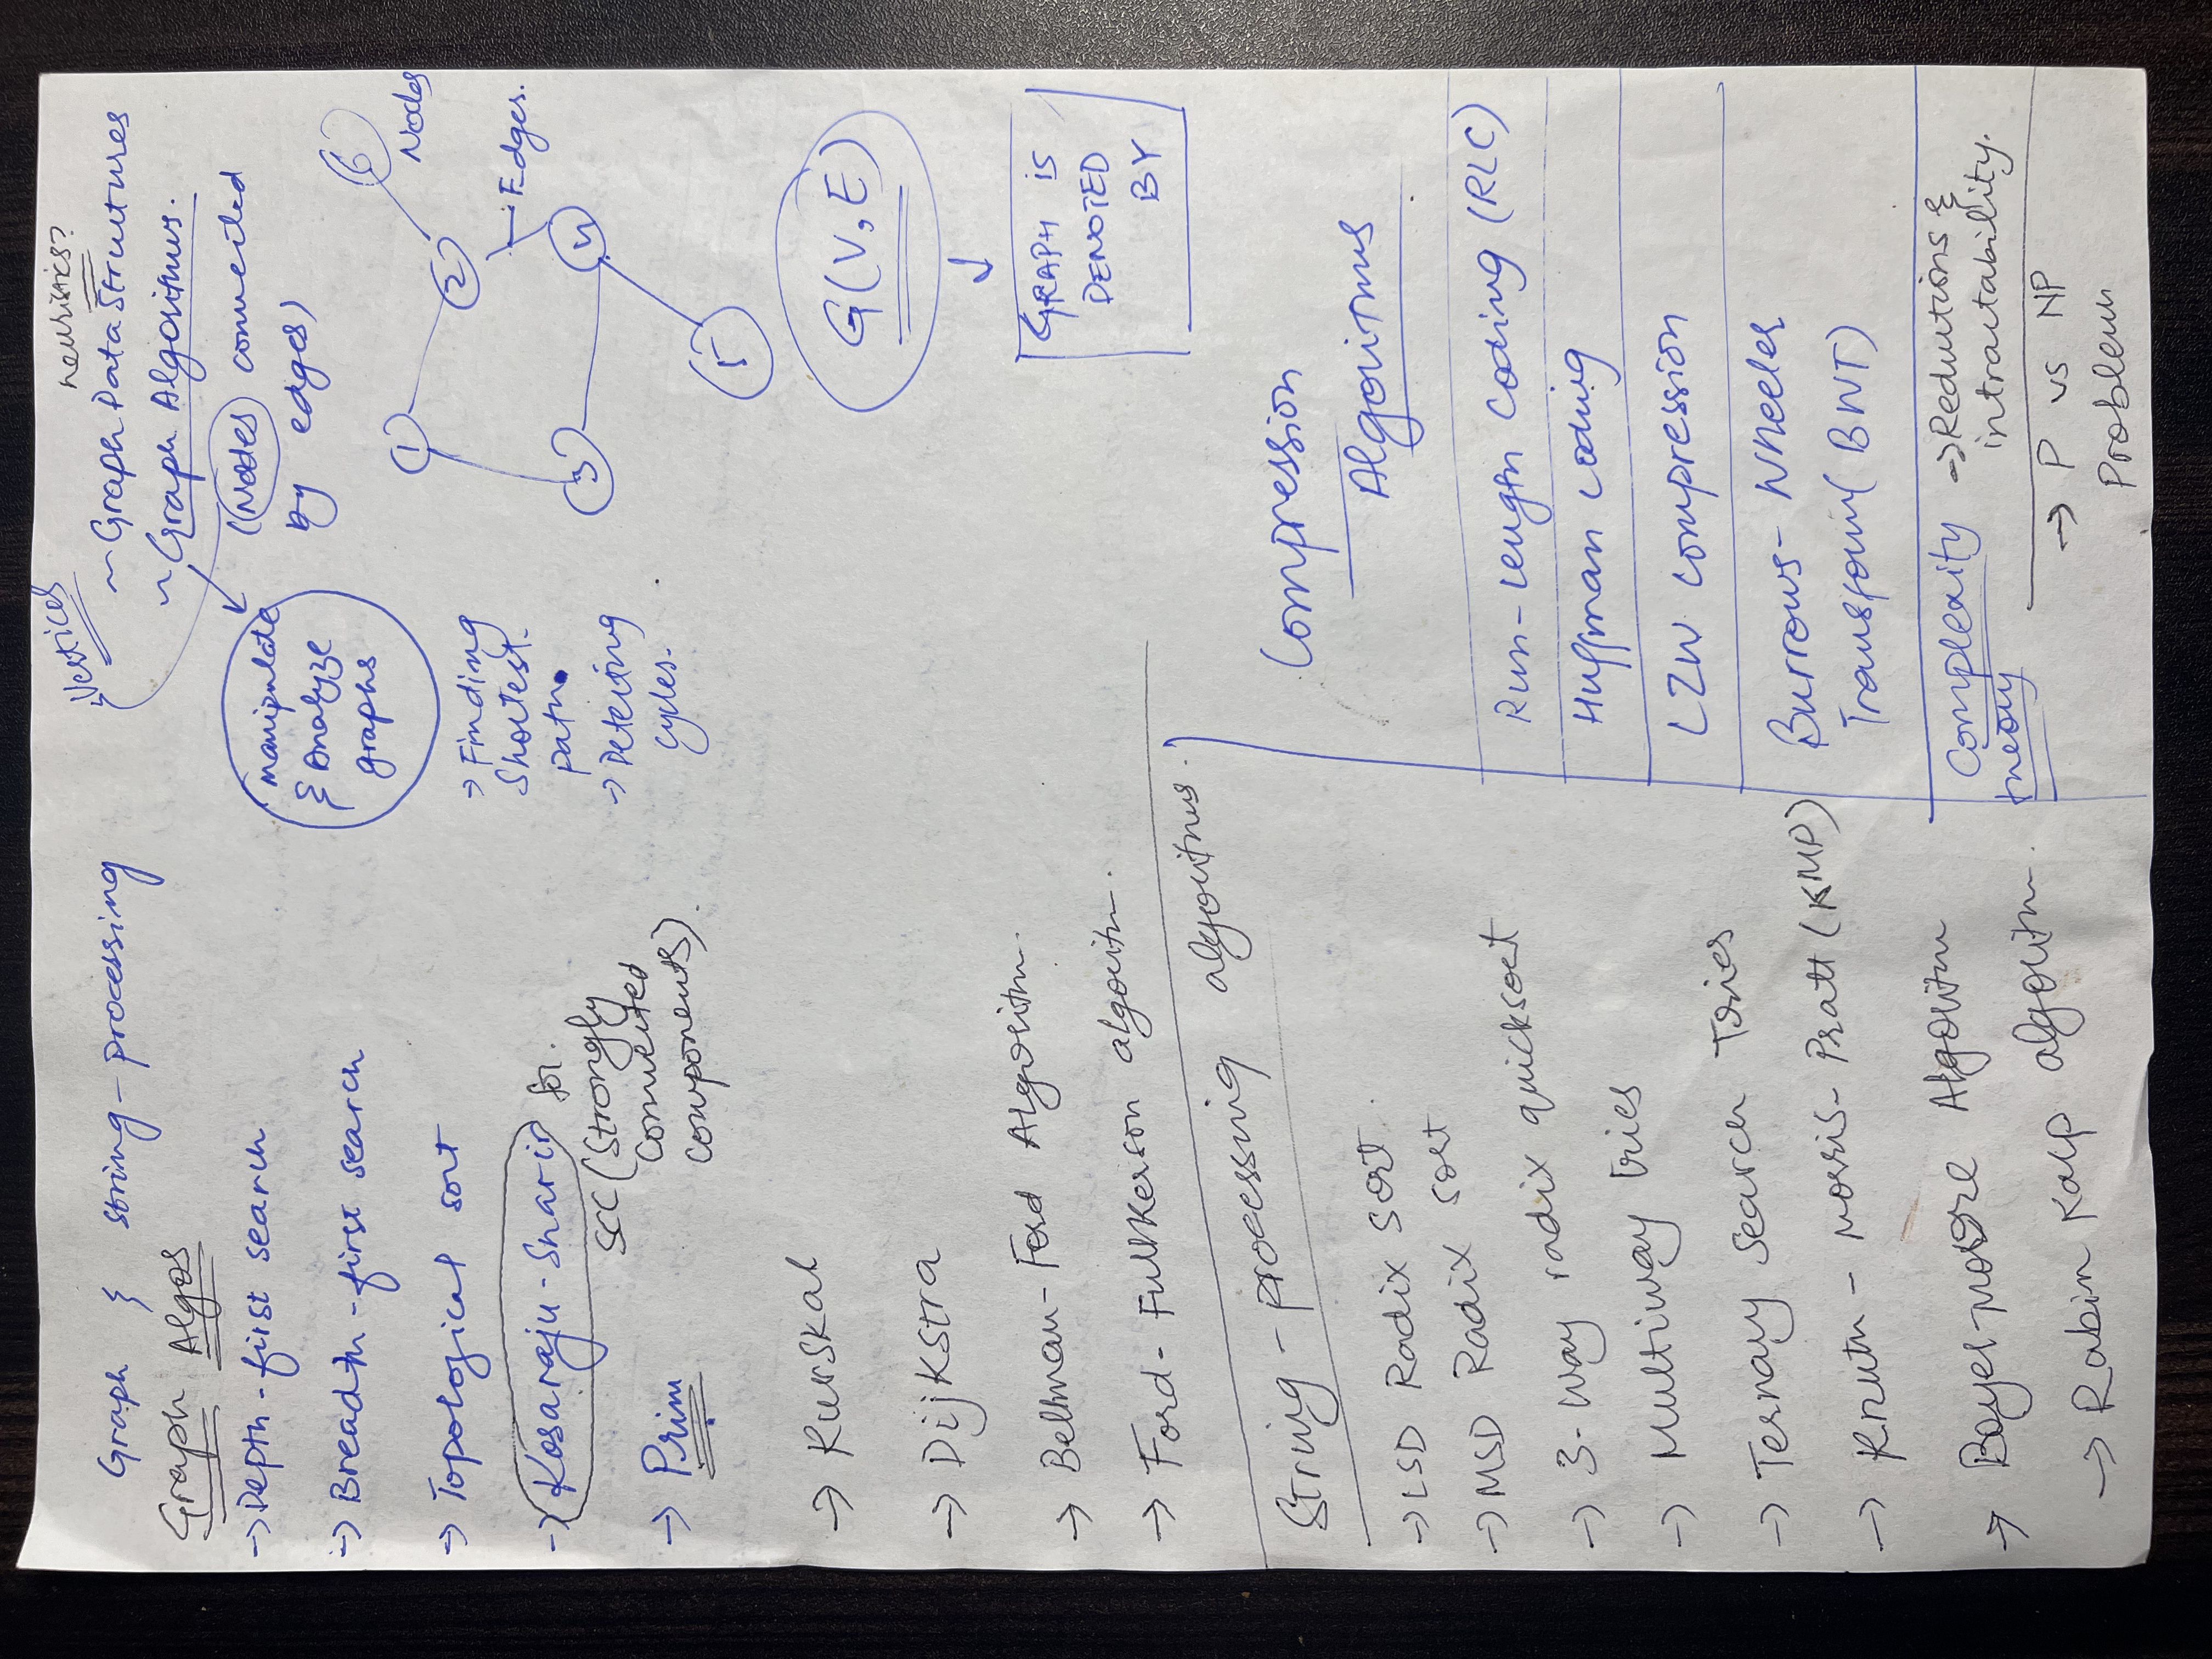 Graph & string-processing
Graph Algos
→ Depth-first search
→ Breadth-first search
→ Topological sort
→ Kosaraju-Sharir for
SCC (Strongly
Connected
Components).
→ Prim
→ Kruskal
→ Dijkstra
→ Bellman-Ford Algorithm.
→ Ford-Fulkerson algorithm.
String-processing algorithms.
→ LSD Radix Sort.
→ MSD Radix Sort
→ 3-way radix quicksort
→ Multiway tries
→ Ternary Search Tries
→ Knuth-Morris-Pratt (KMP)
→ Boyer-Moore Algorithm
→ Rabin Karp algorithm.
heuristics?
Vertices
~ Graph Data Structures
~ Graph Algorithms.
(Nodes connected
by edges)
manipulate
& Analyze
graphs
→ Finding
Shortest
path.
→ Detecting
cycles.
1
2
6
Nodes
Edges.
3
4
5
G(V, E)
↓
GRAPH IS
DENOTED
BY
Compression
Algorithms
Run-Length Coding (RLC)
Huffman Coding
LZW Compression
Burrows-Wheeler
Transform (BWT)
Complexity
theory
→ Reductions &
intractability.
→ P vs NP
Problem